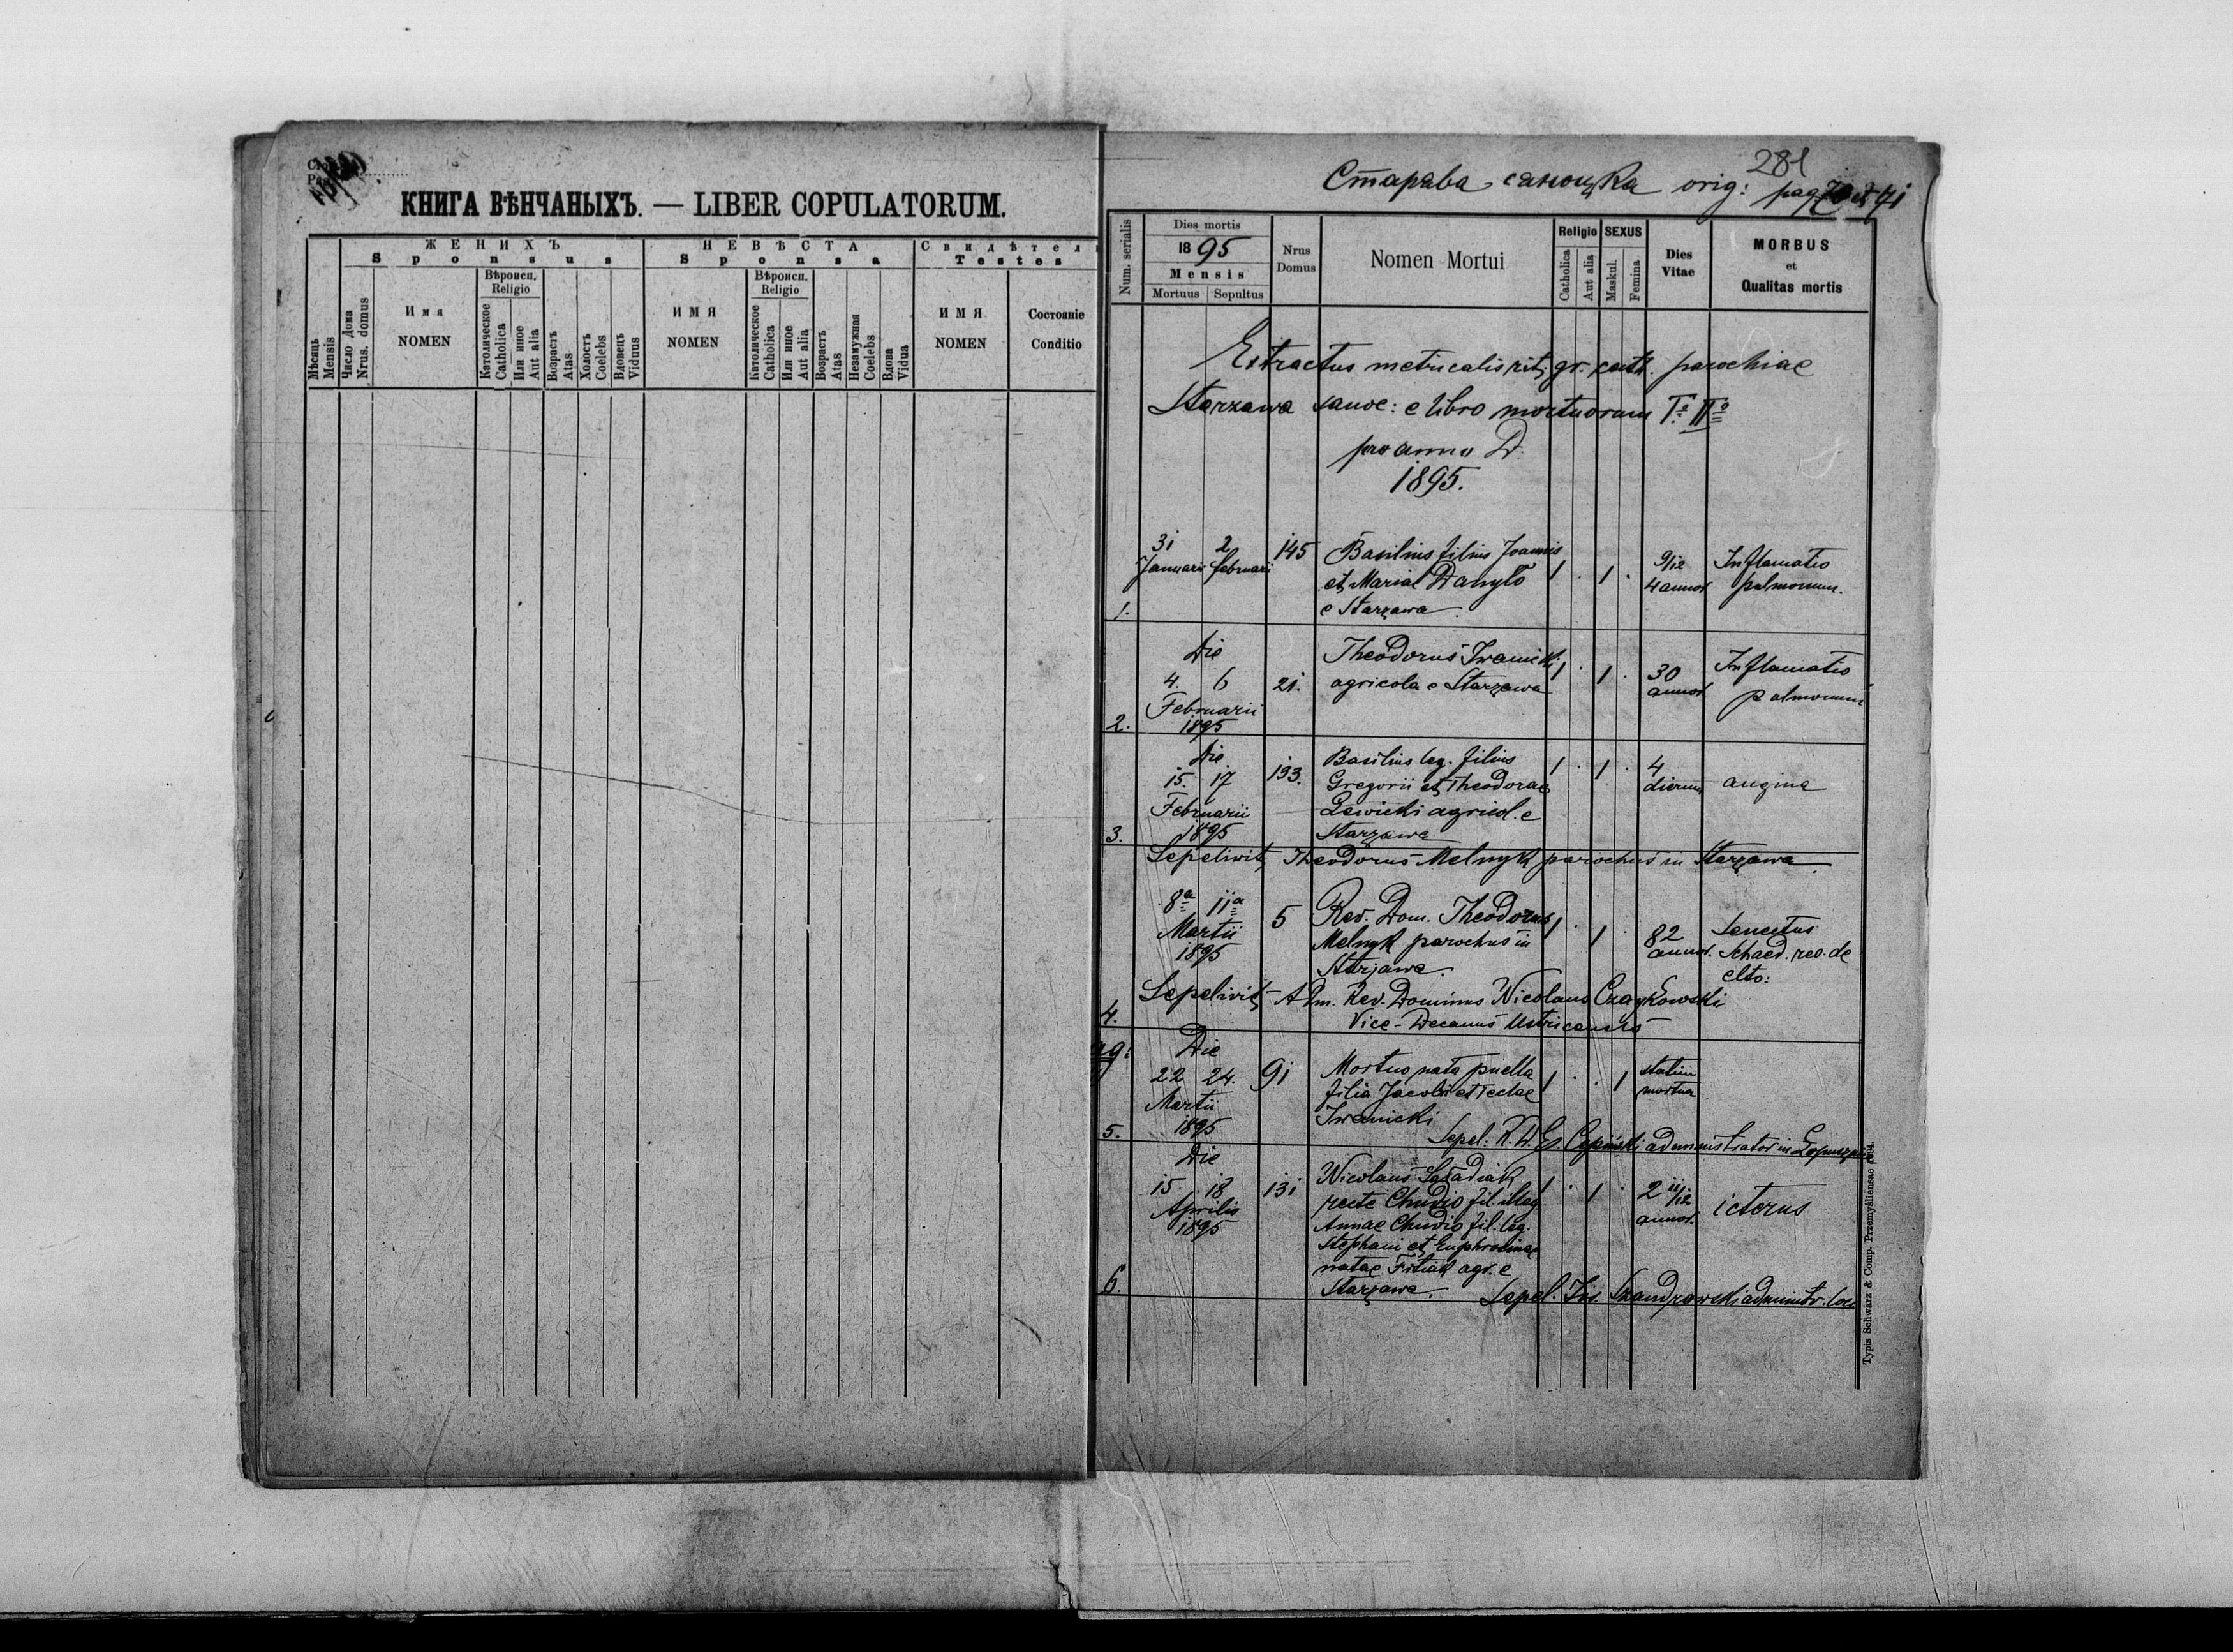 Стор.
Pag.
КНИГА ВѢНЧАНЫХЪ. — LIBER COPULATORUM.
Мѣсяць Mensis
Число дома Nrus. domus
ЖЕНИХЪ
Sponsus
Имя
NOMEN
Вѣроисп.
Religio
Католическое Catholica
Или иное Aut alia
Возрастъ Atas
Холостъ Coelebs
Вдовецъ Viduus
НЕВѢСТА
Sponsa
ИМЯ
NOMEN
Вѣроисп.
Religio
Католическое Catholica
Или иное Aut alia
Возрастъ Atas
Незамужная Coelebs
Вдова Vidua
Свидѣтели
Testes
ИМЯ
NOMEN
Состояніе
Conditio
281
Старява сяноцка orig: pag 70 et 71
Num. serialis
Dies mortis
1895
Mensis
Mortuus Sepultus
Nrus
Domus
Nomen Mortui
Religio
Catholica
Aut alia
SEXUS
Maskul.
Femina
Dies
Vitae
MORBUS
et
Qualitas mortis
Extractus metricalis rit. gr. cath. parochiae
Starzawa sanoc: e libro mortuorum T. II
pro anno D.
1895.
1.
31 2
Januarii Februarii
145
Basilius filius Joannis
et Mariae Danyło
e Starzawa
1 . 1 .
9/12
4 annor
Inflamatio
pulmonum.
2.
Die
4. 6
Februarii
1895
21.
Theodorus Iwanicki
agricola e Starzawa
1 . 1 .
30
annor
Inflamatio
palmonum
3.
Die
15. 17
Februarii
1895
133.
Basilius leg. filius
Gregorii et Theodorae
Lewicki agricol. e
Starzawa
1 . 1 .
4
dierum
angina
Sepelivit Theodorus Melnyk parochus in Starzawa
4.
8a 11a
Martii
1895
5
Rev. Dom. Theodorus
Melnyk parochus in
Starzawa.
1 . 1 .
82
annor.
Senectus
Schaed. rev. de
clto:
Sepelivit Adm. Rev. Dominus Nicolaus Czaykowski
Vice-Decanus Ustricensis
5.
Die
22 24.
Martii
1895
91
Mortuo nata puella
filia Jacobi et Teclae
Iwanicki
1 . . 1
statim
mortua
Sepel: R. D. administrator in
6.
Die
15. 18
Aprilis
1895
131
Nicolaus Saładiak
recte Chudio fil. illeg.
Annae Chudio fil. leg.
Stephani et Euphrosinae
natae agr. e
Starzawa.
1 . 1 .
2 11/12
annor.
icterus
Sepel. administr. loci
Typis Schwarz & Comp. Przemyśliensae 1894.